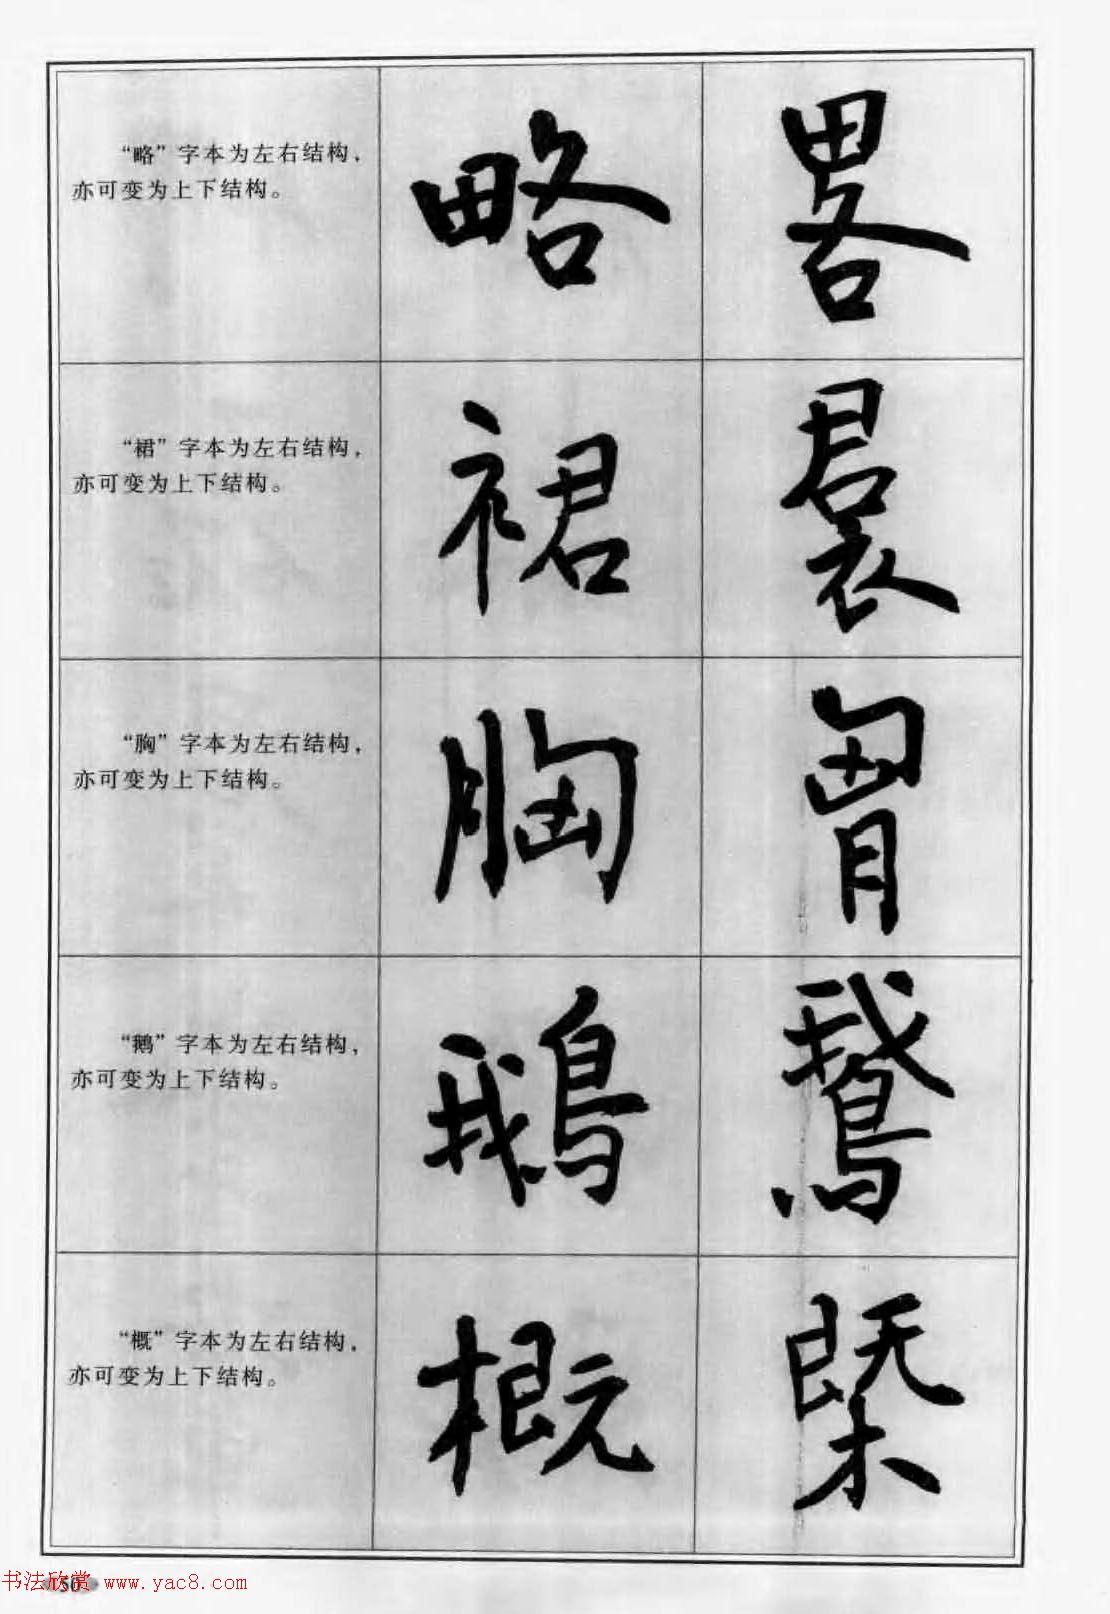 “略”字本为左右结构，
亦可变为上下结构。
略 畧
“裙”字本为左右结构，
亦可变为上下结构。
裙 裠
“胸”字本为左右结构，
亦可变为上下结构。
胸 胷
“鹅”字本为左右结构，
亦可变为上下结构。
鵝 鵞
“概”字本为左右结构，
亦可变为上下结构。
概 槩
50
书法欣赏 www.yac8.com